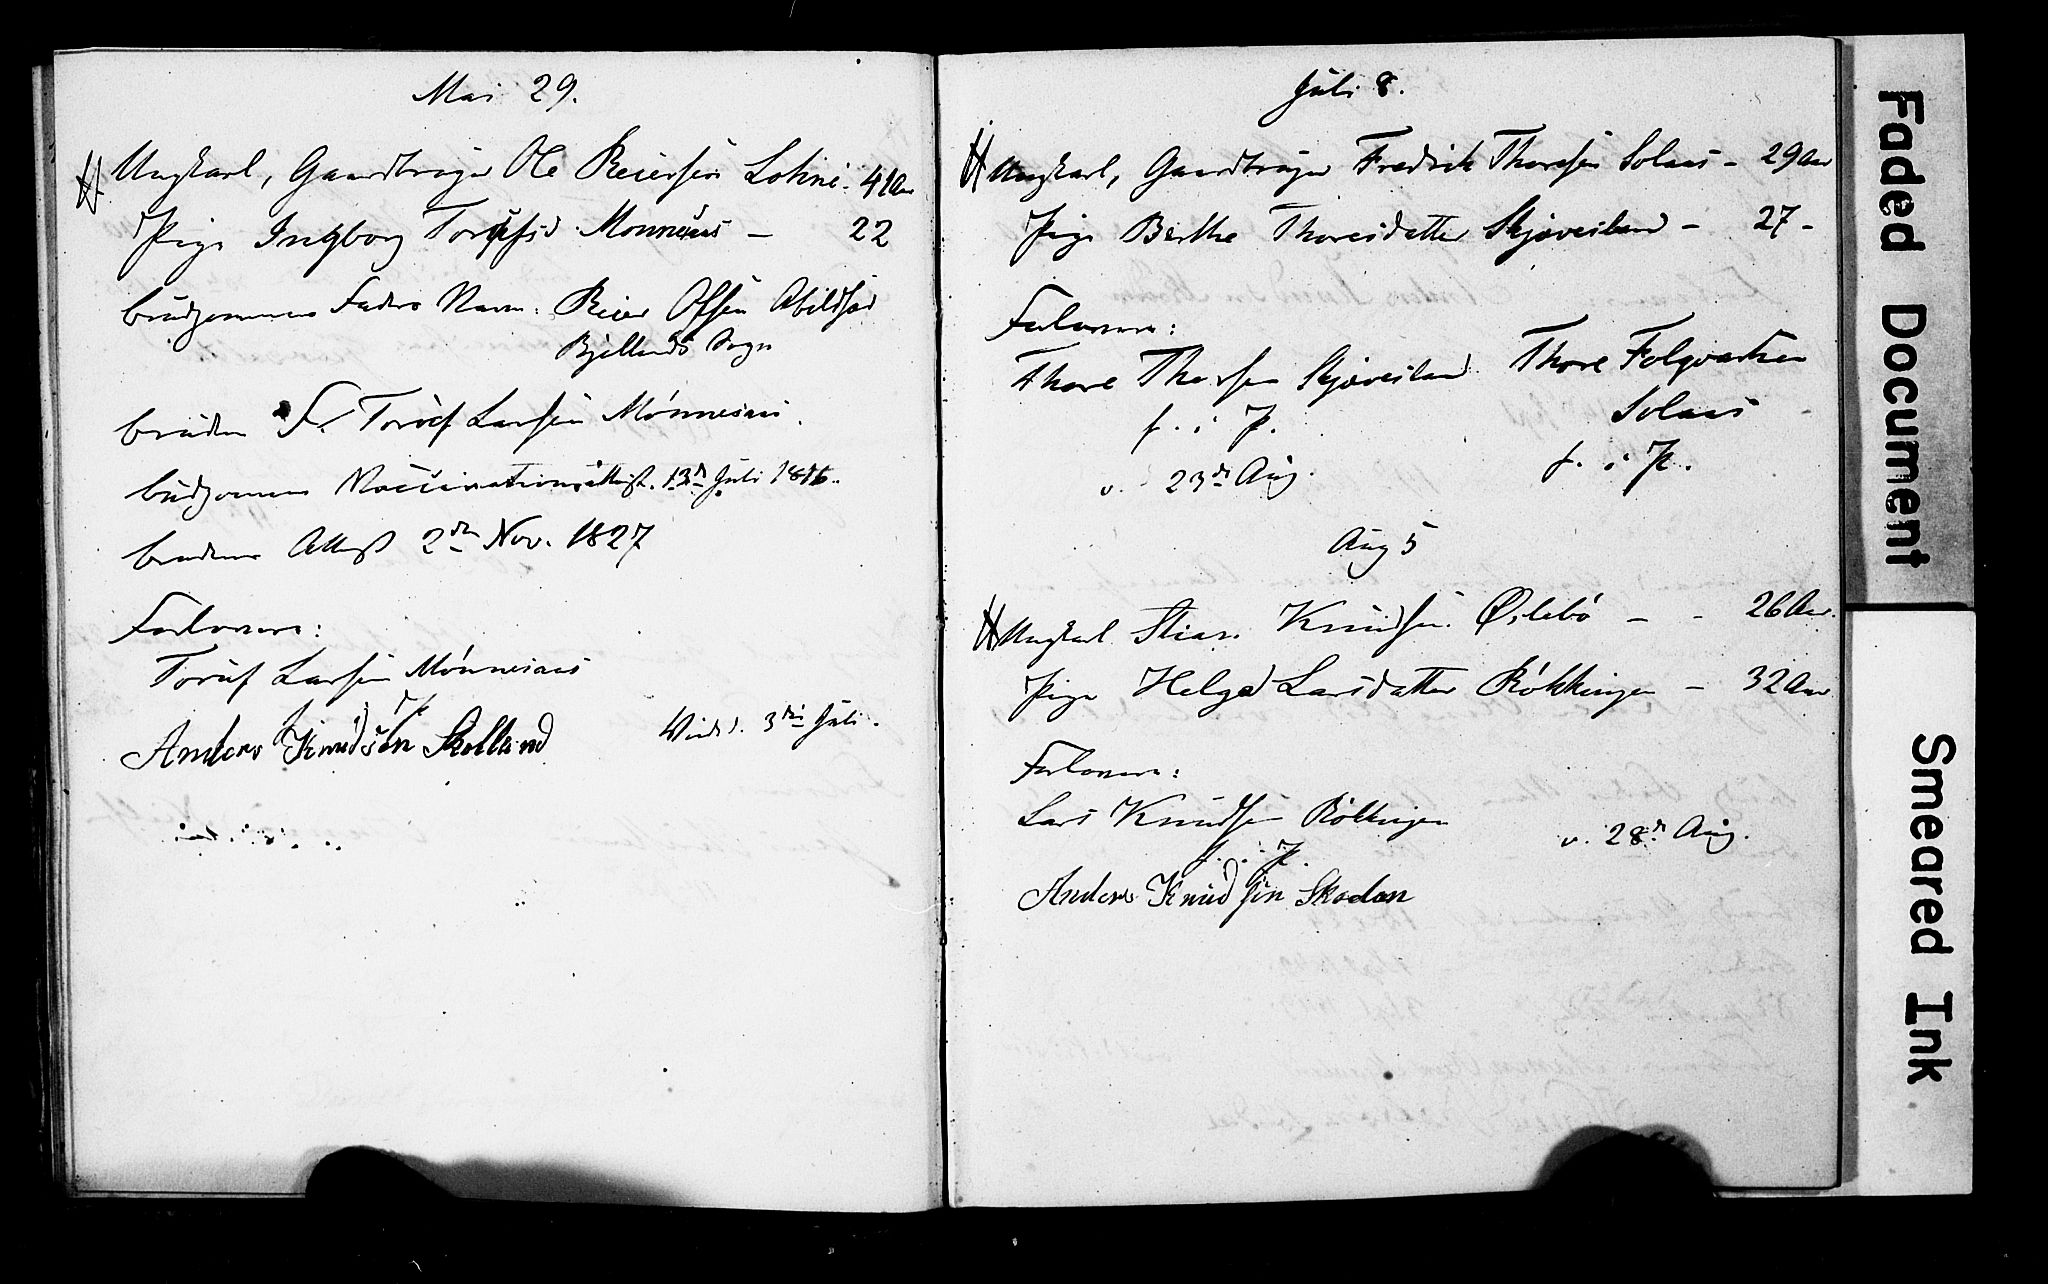 Mai 29.
Ungkarl, Gaardbruger Ole Reiersen Lohne - 41 Aar
Pige Ingborg Torüfsd. Monnesaas - 22
brüdgommens Faders Navn: Reier Olsen Abildsø
Bjellands Sogn
brüdens F. Torüf Larsen Mónnesaas.
brüdgommens Vaccinationsattest. 13de Jüli 1816.
brudens Attest 2den Nov. 1827
Forlovere:
Torüf Larsen Mónnesaas
Anders Knudsen
Viede d. 3die Jüli.
Jüli 8.
Ungkarl, Gaardbruger Fredrik Thoresen Solaas - 29 Aar
Pige Birthe Thoresdatter Skjævesland - 27 -
Forlovere:
Thore Thoresen Skjævesland Thore Folqvardsen
Solaas
f. i P.
f. i P.
v. 23de Aüg.
Aüg 5
Ungkarl Stian Knüdsen Øslebó - - 26 Aar.
Pige Helga Larsdatter Rókkingen - 32 Aar
Forlovere:
Lars Knüdsen Rókkingen
v. 28de Aüg.
f. i P.
Anders Knüdsen Skoden
Faded Document
Smeared Ink